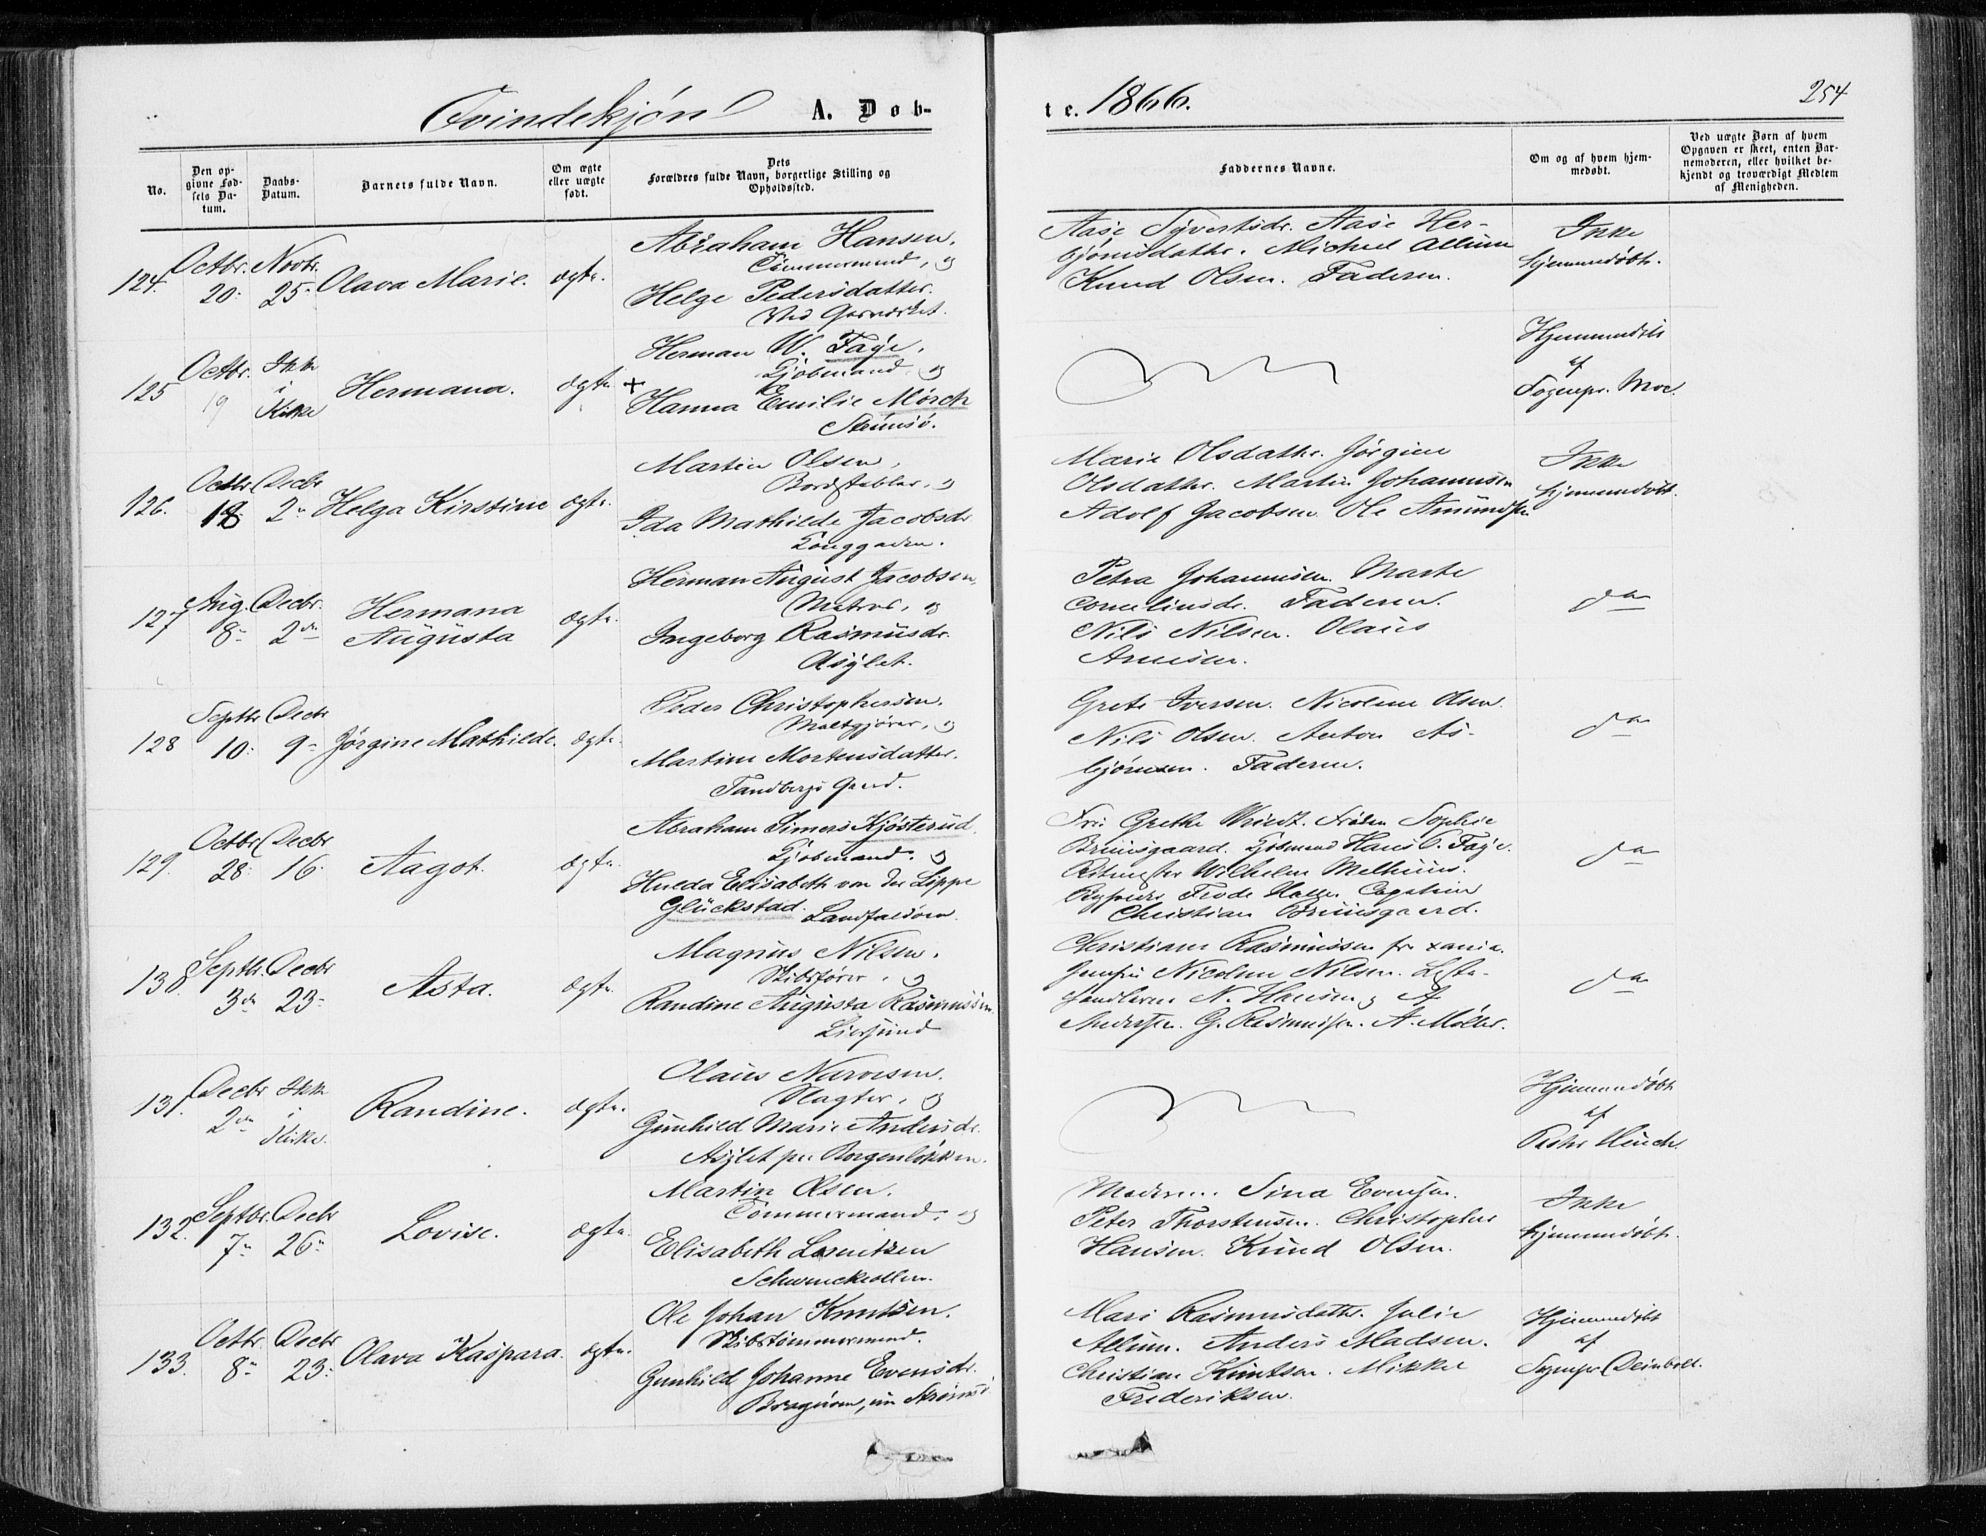 Qvindekjøn A. Døb-
te. 1866.
254
No.
Den op-
givne Fød-
sels Da-
tum.
Daabs-
Datum.
Barnets fulde Navn.
Om ægte
eller uægte
født.
Dets
Forældres fulde Navn, borgerlige Stilling og
Opholdssted.
Faddernes Navne.
Om og af hvem hjem-
medøbt.
Ved uægte Børn af hvem
Opgaven er skeet, enten Bar-
nemoderen, eller hvilket be-
kjendt og troværdigt Medlem
af Menigheden.
124.
Octbr.
20.
Novbr.
25.
Olava Marie.
ægte.
Abraham Hansen,
Tømmermand, og
Helge Pedersdatter.
Ved Garveriet.
Aase Syvertsdr. Aase Her-
bjørnsdatter. Michael Allum
Knud Olsen. Faderen.
Ikke
hjemmedøbt.
125
Octbr.
19
Ikke
i
Kirke
Hermana.
ægte.
+
Herman W. Faye,
Kjøbmand og
Hanna Emilie Mørch
Strømsø.
Hjemmedøbt
af
Sognepr. Moe.
126.
Octbr
18
Decbr
2
Helga Kirstine
ægte.
Martin Olsen,
Bordstabler, og
Ida Mathilde Jacobsdr
Langgaden.
Marie Olsdatter. Jørgine
Olsdatter. Martin Johannesen
Adolf Jacobsen. Ole Amundsen
Ikke
hjemmedøbt.
127
Aug.
8
Decbr.
2den
Hermana
Augusta
ægte.
Herman August Jacobsen,
Matros, og
Ingeborg Rasmusdr.
Asylet.
Petra Johannesen. Marte
Corneliusdr. Faderen.
Nils Nilsen. Olaus
Arnesen.
do
128
Septbr
10
Decbr
9
Jørgine Mathilde.
ægte.
Peder Christophersen,
Maltgjører, og
Martine Mortensdatter.
Tandbergs Gaard.
Grete Iversen. Nicoline Olsen
Nils Olsen. Anton As-
bjørnsen. Faderen.
do
129.
Octbr
28
Decbr
16.
Aagot.
ægte.
Abraham Simers Kjøsterud
Kjøbmand. og
Hulda Elisabeth von der Lippe
Glückstad. Landfaldøen.
Fru Grethe Wriedt. Frøken Sophie
Bruusgaard. Kjøbmand Hans C. Faye.
Ritmester Wilhelm Melhuus.
Frode Halle. Capitain
Christian Bruusgaard.
do
130.
Septbr.
3die
Decbr
23
Asta.
ægte.
Magnus Nilsen,
Skibsfører, og
Randine Augusta Rasmussen
Liersund
Christiane Rasmussen fra Xania.
Jomfru Nicoline Nilsen.
N. Hansen og A
Andersen. G. Rasmussen. A. Møller.
do
131.
Decbr
2den
Ikke
i
Kirke.
Randine.
ægte.
Olaus Narvesen.
Slagter, og
Gunhild Marie Andersdr.
Asylet paa Borgenløkken.
Hjemmedøbt
af
132.
Septbr.
7
Decbr
26
Lovise.
ægte.
Martin Olsen.
Tømmermand, og
Elisabeth Lorentzen
Schwenckeolløkken.
Moderen. Sina Evensen.
Peter Thorstensen. Christopher
Hansen. Knud Olsen.
Ikke
hjemmedøbt.
133.
Octbr.
8
Decbr
23.
Olava Kaspara.
ægte.
Ole Johan Knutsen.
Skibstømmermand.
Gunhild Johanne Evensdr.
Bragernes, nu Strømsø
Mari Rasmusdatter. Julie
Allum. Anders Madsen.
Christian Knutsen. Mikkel
Frederiksen.
Hjemmedøbt
af
Sognepr. Deinboll.